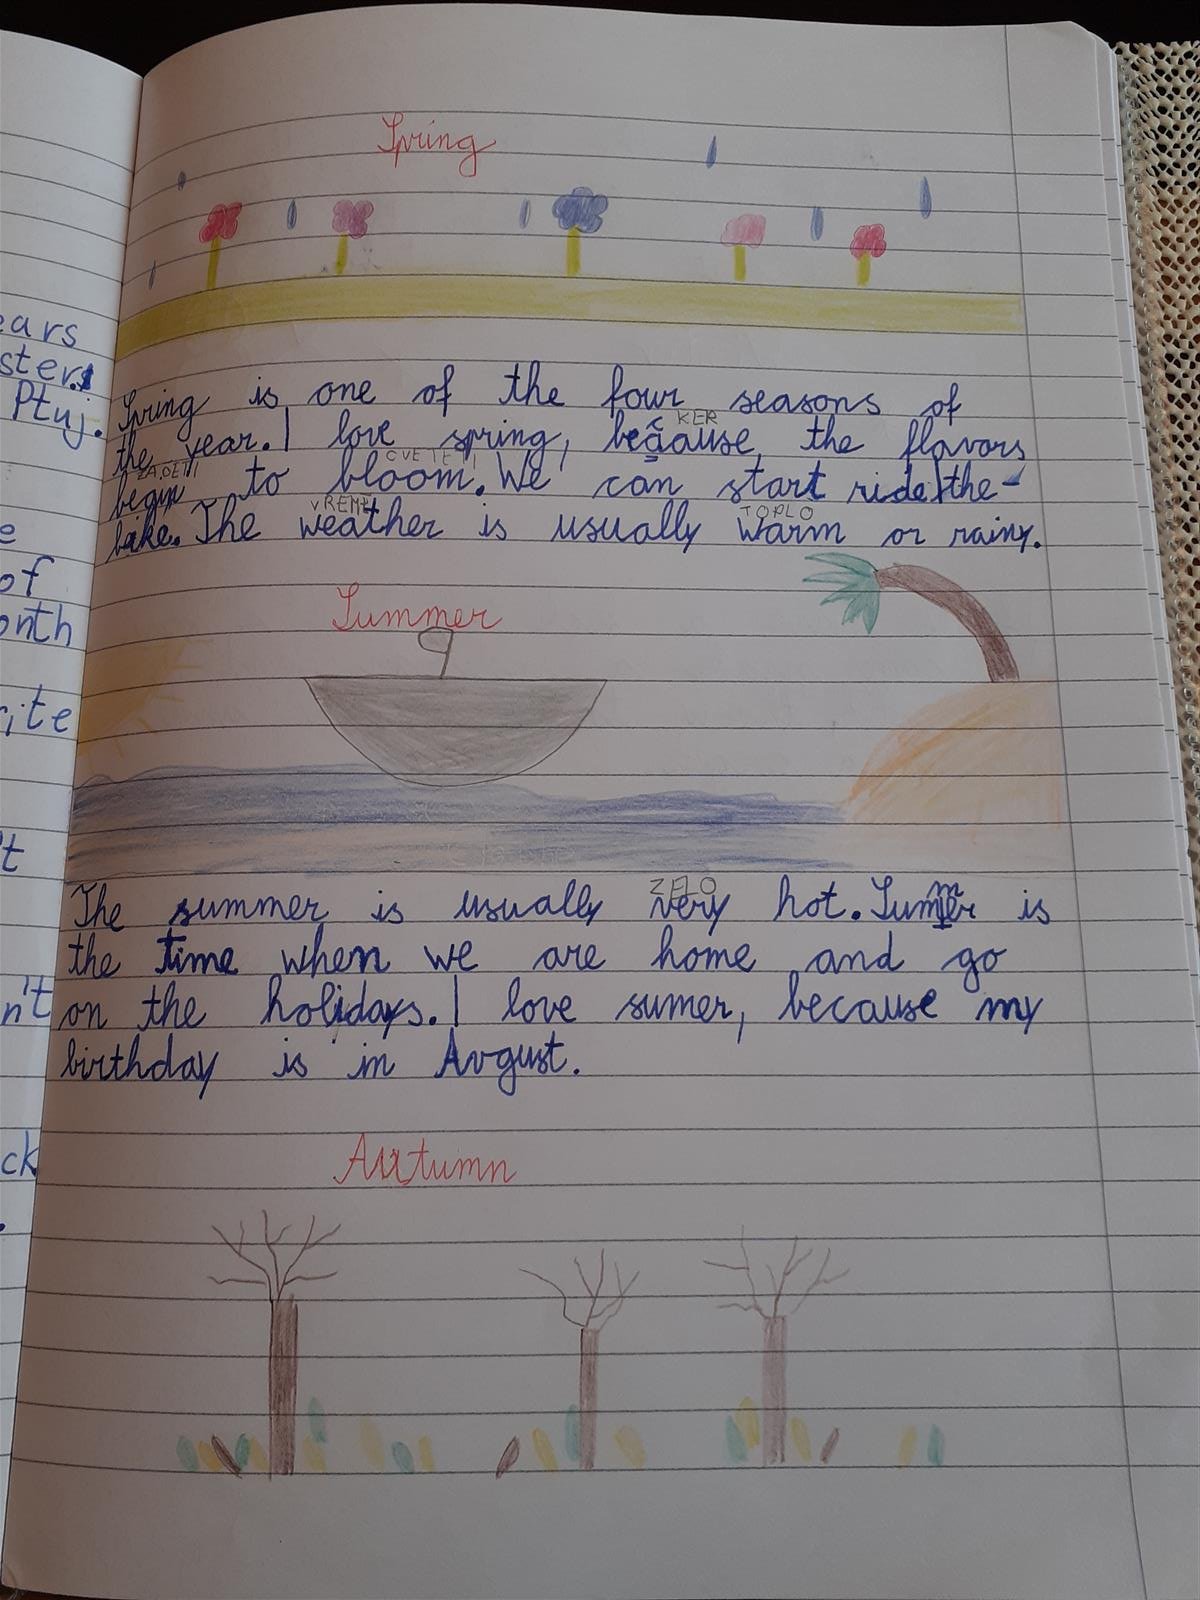 Spring
ears
ster.
Ptuj.
Spring is one of the four seasons of
KER
the year. I love spring, because, the flavors
ZAČETI CVETETI
begin to bloom. We can start ride the
VREME TOPLO
bike. The weather is usually warm or rainy.
e
of
onth
Summer
rite
't
ZELO
The summer is usually very hot. Summer is
the time when we are home and go
n't
on the holidays. I love sumer, because my
birthday is in Avgust.
Autumn
ck
.